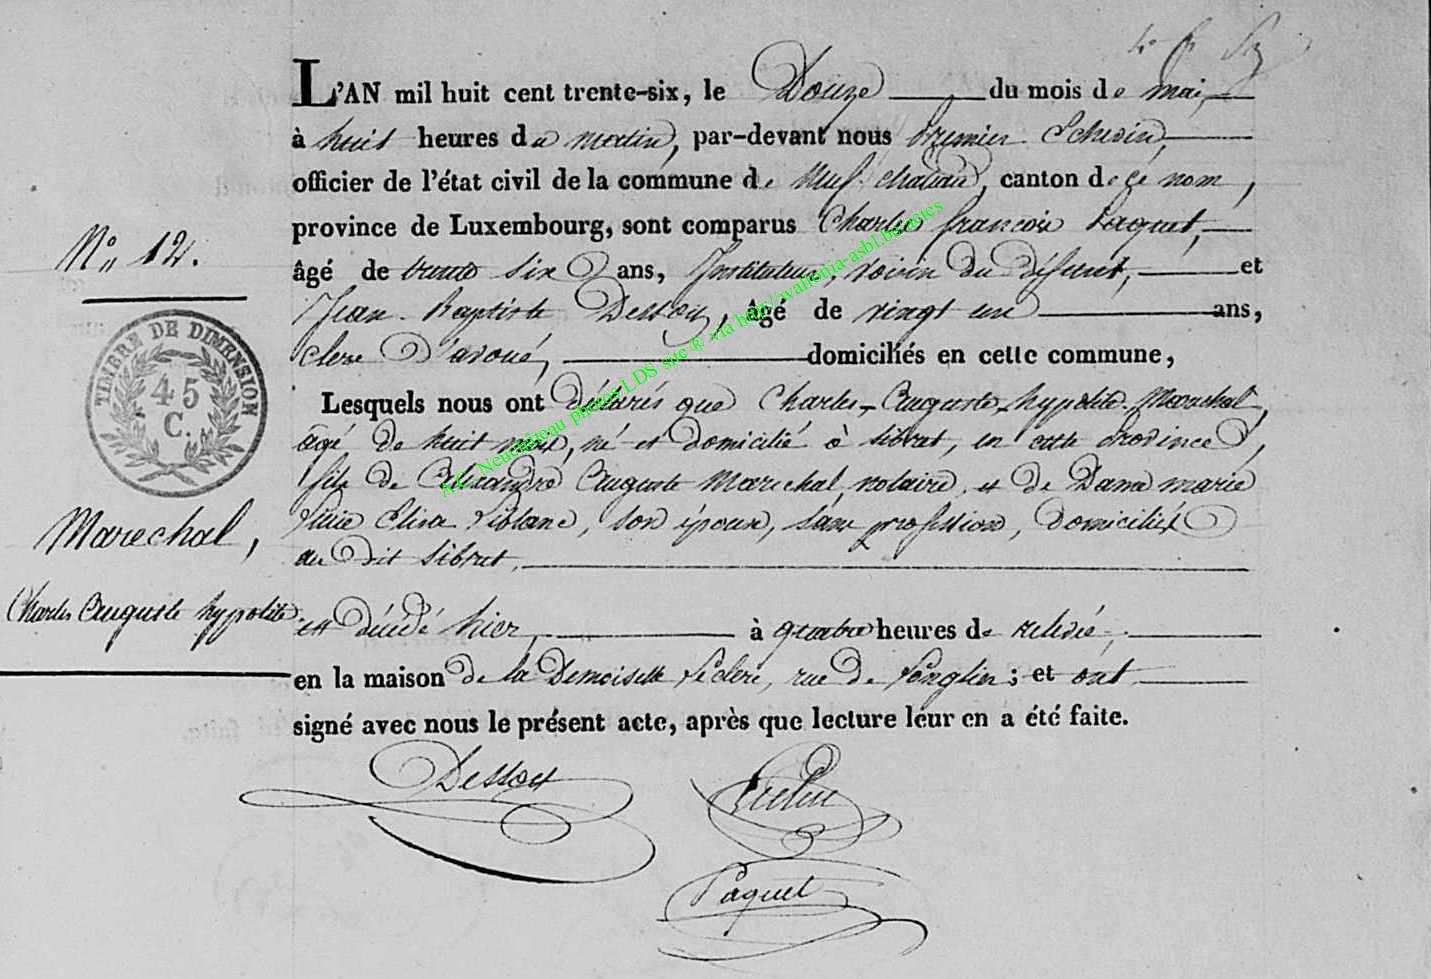 L'AN mil huit cent trente-six, le Douze du mois de mai,
à huit heures du matin, par-devant nous premier Echevin,
officier de l'état civil de la commune de Neufchateau, canton de ce nom,
province de Luxembourg, sont comparus Charles françois Paquet,
âgé de trente six ans, Instituteur, voisin du défunt, et
N° 12.
Jean Baptiste Dessoy, âgé de vingt un ans,
clerc d'avoué, domiciliés en cette commune,
TIMBRE DE DIMENSION
45
C.
Lesquels nous ont déclarés que Charles Auguste hypolite Marechal,
âgé de huit mois, né et domicilié à Sibret, en cette province,
fils de Alexandre Auguste Marechal, notaire, et de Dame marie
Elisa, son épouse, sans profession, domiciliés
au dit Sibret,
Marechal,
Charles Auguste hypolite.
est décédé hier, à quatre heures de relevée,
en la maison de la Demoiselle Leclerc, rue de; et ont
signé avec nous le présent acte, après que lecture leur en a été faite.
Dessoy
Paquet
AE Neufchâteau photos LDS site ® via http://wallonia-asbl.be/actes